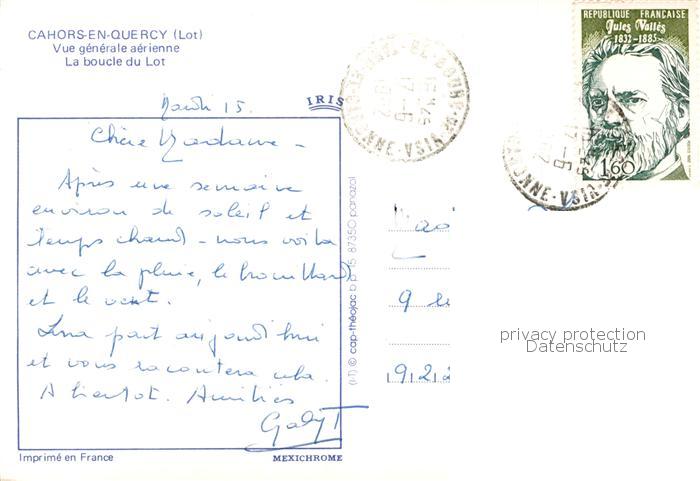 CAHORS-EN-QUERCY (Lot)
Vue générale aérienne
La boucle du Lot
RÉPUBLIQUE FRANÇAISE
Jules Vallès
1832-1885
1,60
Mardi 15.
IRIS
Chère Madame -
Après une semaine
environ de soleil et
temps chaud - nous voila
avec la pluie, le brouillard
et le vent.
part aujourd'hui
et vous racontera cela.
A bientot. Amitiés
(I-T) © cap-théojac b.p. 15 87350 panazol
17-6
9
92
privacy protection
Datenschutz
Imprimé en France
MEXICHROME